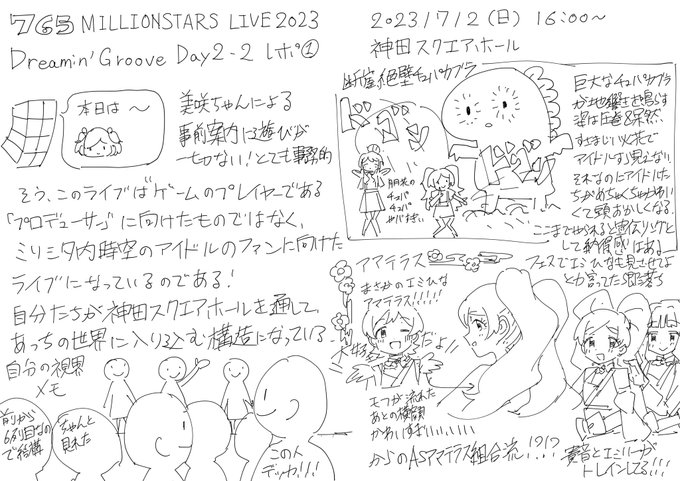 765 MILLIONSTARS LIVE2023
Dreamin' Groove Day2-2 レポ①
本日は〜
美咲ちゃんによる
事前案内に遊びが
一切ない!とても事務的
そう、このライブはゲームのプレイヤーである
「プロデューサー」に向けたものではなく、
ミリシタ内時空のアイドルのファンに向けた
ライブになっているのである!
自分たちが神田スクエアホールを通して、
あっちの世界に入り込む構造になっている
自分の視界
メモ
前から
6列目なの
で結構
ちゃんと
見れた
この人
デッカ!!!
2023/7/2(日) 16:00〜
神田スクエアホール
断崖絶壁チュパカブラ
チュパ
チュパ
ヤバすぎ
巨大なチュパカブラ
が地響きを鳴らす
姿は圧巻&呆然。
すさまじい火花で
アイドルすら見えない。
それなのにアイドルた
ちがめちゃくちゃかわい
くて頭おかしくなる。
ここまでやられると宣伝ソングと
して納得感はある
フェスでエミひなも見させてよ
とか言ってたら即落ち
アマテラス
まさかのエミひな
アマテラス!!!!!
だよ!!
曲が流れた
あとの横顔
かわいすぎぃぃぃぃぃ
からのASアマテラス組合流!?!?
貴音とエミリーが
トレインしてる!!!